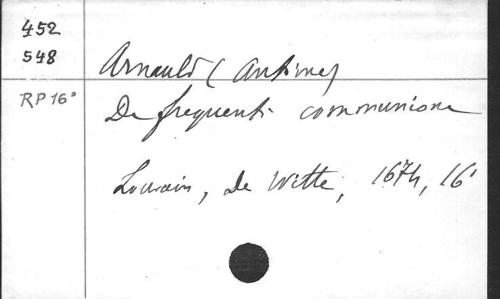 452
548
Arnauld (Antoine)
RP 16°
De frequenti communione
Louvain, De Witte, 1674, 16°